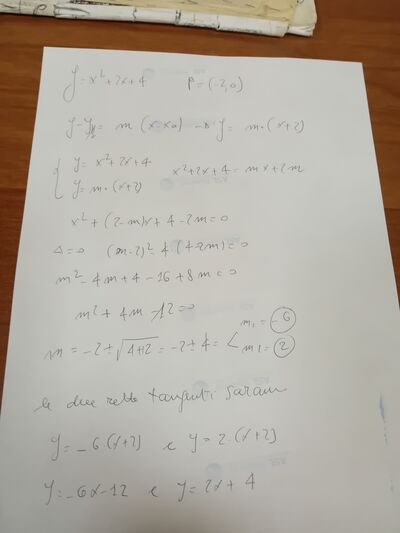 y = x² + 2x + 4 P = (-2,0)
y - y₁ = m (x - x₀) → y = m · (x+2)
{ y = x² + 2x + 4
y = m · (x+2) x² + 2x + 4 = mx + 2m
x² + (2-m)x + 4 - 2m = 0
Δ = 0 (m-2)² - 4 (4-2m) = 0
m² - 4m + 4 - 16 + 8m = 0
m² + 4m - 12 = 0
m = -2 ± √4+2 = -2 ± 4 = < m₁ = -6
m₁ = 2
le due rette tangenti saran
y = -6 · (x+2) e y = 2 · (x+2)
y = -6x - 12 e y = 2x + 4